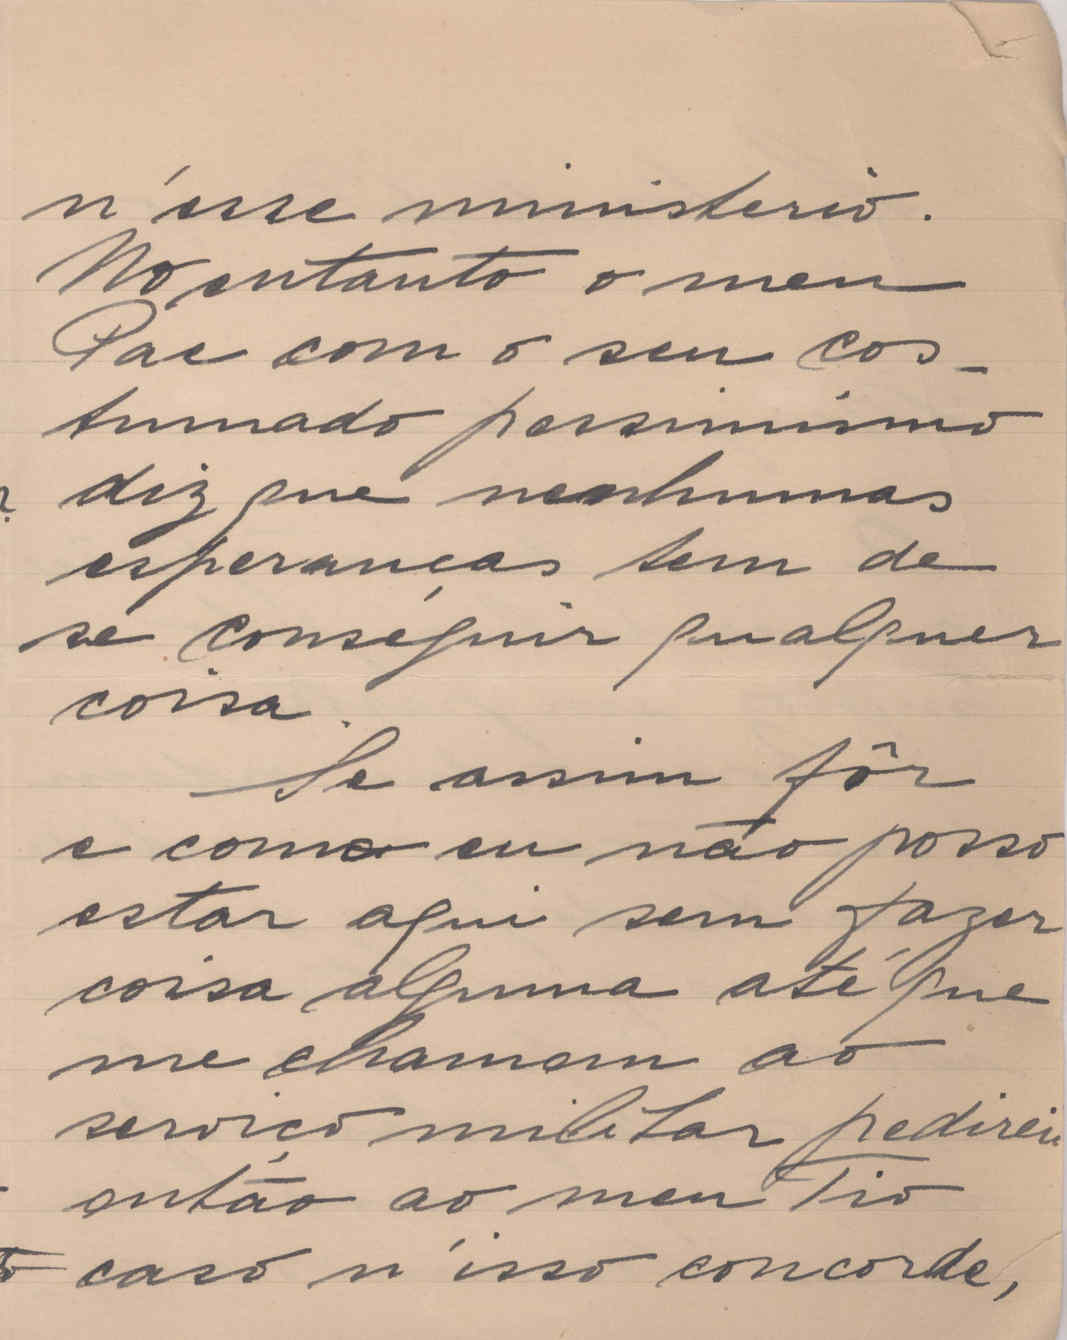 n'esse ministerio.
No entanto o meu
Pae com o seu cos-
tumado pessimismo
diz que nenhumas
esperanças tem de
se conseguir qualquer
coisa.
Se assim fôr
e como eu não posso
estar aqui sem fazer
coisa alguma até que
me chamem ao
serviço militar pedirei
então ao meu Tio
caso n'isso concorde,